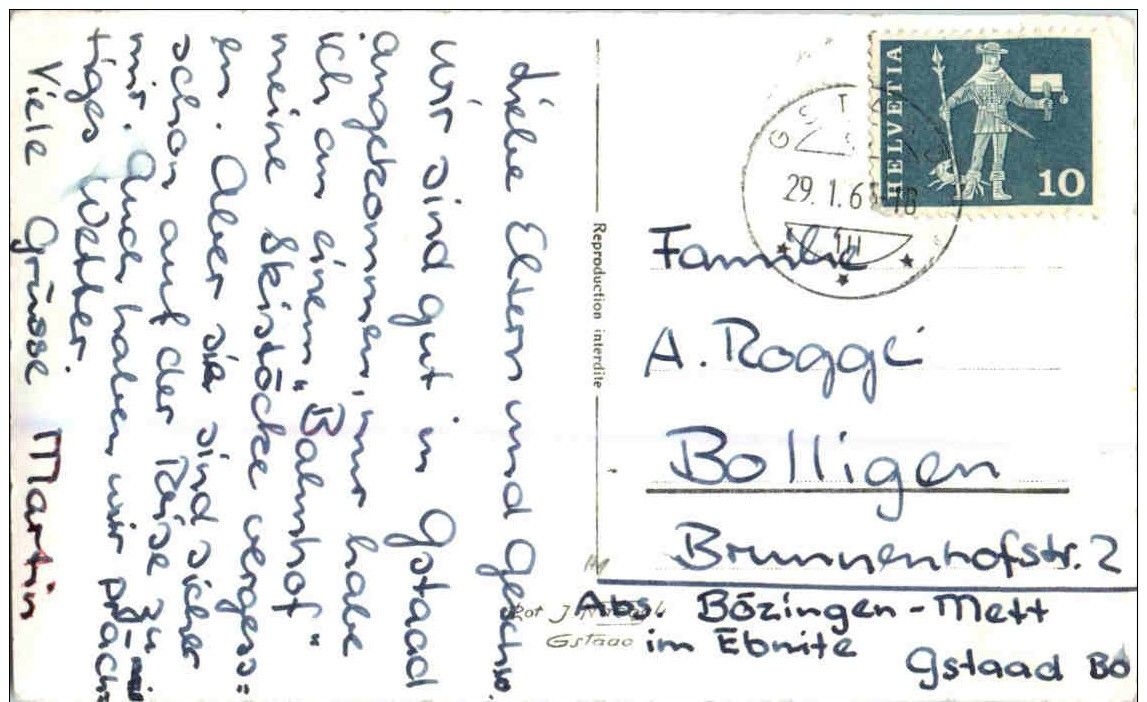 Liebe Eltern und Geschw.
Wir sind gut in Gstaad
angekommen, nur habe
ich an einem "Bahnhof"
meine Skistöcke verges=
en. Aber sie sind sicher
schon auf der Reise zu
mir. Auch haben wir präch=
tiges Wetter.
Viele Grüsse Martin
HELVETIA
10
29.1.6
Reproduction interdite
Familie
A. Roggi
Bolligen
Brunnenhofstr. 2
Abs. Bözingen-Mett
im Ebnite
Gstaad BO
Gstaad